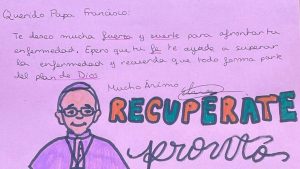 Querido Papa Francisco:
Te deseo mucha fuerza y suerte para afrontar tu
enfermedad. Epero que tu fe te ayude a superar
la enfermedad y recuerda que todo forma parte
del plan de Dios
Mucho Ánimo
RECUPERATE
pronto